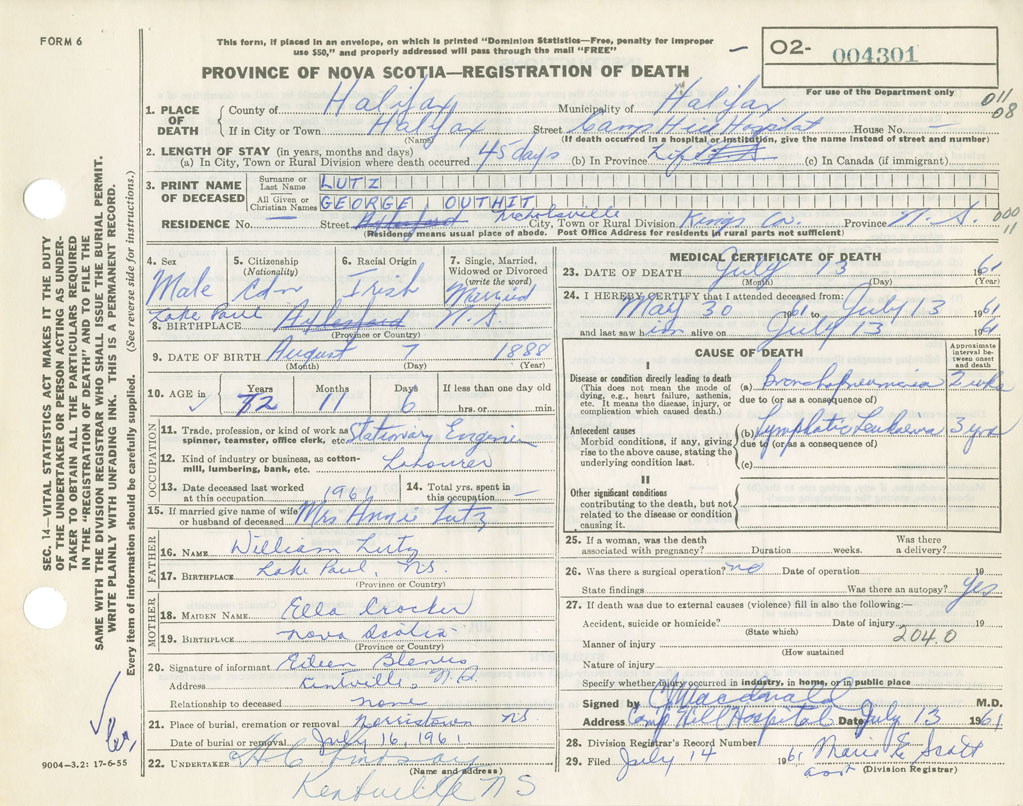 FORM 6
This form, if placed in an envelope, on which is printed "Dominion Statistics—Free, penalty for improper
use $50," and properly addressed will pass through the mail "FREE"
PROVINCE OF NOVA SCOTIA—REGISTRATION OF DEATH
02- 004301
For use of the Department only
011
08
1. PLACE OF DEATH
County of Halifax Municipality of Halifax
If in City or Town Halifax Street Camp Hill Hospital House No. —
(Name) (If death occurred in a hospital or institution, give the name instead of street and number)
2. LENGTH OF STAY (in years, months and days)
(a) In City, Town or Rural Division where death occurred 45 days (b) In Province Life (c) In Canada (if immigrant)
3. PRINT NAME OF DECEASED
Surname or Last Name LUTZ
All Given or Christian Names GEORGE OUTHIT
RESIDENCE No. — Street Aylesford Nicholsville City, Town or Rural Division Kings Co. Province N.S.
000
11
(Residence means usual place of abode. Post Office Address for residents in rural parts not sufficient)
4. Sex
Male
5. Citizenship
(Nationality)
Cdn
6. Racial Origin
Irish
7. Single, Married,
Widowed or Divorced
(write the word)
Married
8. BIRTHPLACE Lake Paul Aylesford N.S.
(Province or Country)
9. DATE OF BIRTH August 7 1888
(Month) (Day) (Year)
10. AGE in Years 72 Months 11 Days 6 If less than one day old
hrs. or min.
OCCUPATION
11. Trade, profession, or kind of work as
spinner, teamster, office clerk, etc. Stationary Engineer
12. Kind of industry or business, as cotton-
mill, lumbering, bank, etc. Labourer
13. Date deceased last worked
at this occupation 1961
14. Total yrs. spent in
this occupation —
15. If married give name of wife
or husband of deceased Mrs Annie Lutz
FATHER
16. NAME William Lutz
17. BIRTHPLACE Lake Paul, NS.
(Province or Country)
MOTHER
18. MAIDEN NAME Ella Crocker
19. BIRTHPLACE Nova Scotia
(Province or Country)
20. Signature of informant Eileen
Address Kentville, N.S.
Relationship to deceased none
21. Place of burial, cremation or removal Morristown NS
Date of burial or removal July 16, 1961
22. UNDERTAKER H C Lindsay
(Name and address)
Kentville NS
MEDICAL CERTIFICATE OF DEATH
23. DATE OF DEATH July 13 1961
(Month) (Day) (Year)
24. I HEREBY CERTIFY that I attended deceased from:
May 30 1961 to July 13 1961
and last saw him alive on July 13 1961
CAUSE OF DEATH
Approximate
interval be-
tween onset
and death
I
Disease or condition directly leading to death
(This does not mean the mode of
dying, e.g., heart failure, asthenia,
etc. It means the disease, injury, or
complication which caused death.)
(a) Bronchopneumonia 2 wks
due to (or as a consequence of)
Antecedent causes
Morbid conditions, if any, giving
rise to the above cause, stating the
underlying condition last.
(b) Lymphatic Leukaemia 3 yrs
due to (or as a consequence of)
(c)
II
Other significant conditions
contributing to the death, but not
related to the disease or condition
causing it.
25. If a woman, was the death
associated with pregnancy? Duration weeks. Was there
a delivery?
26. Was there a surgical operation? no Date of operation 19
State findings Was there an autopsy? Yes
27. If death was due to external causes (violence) fill in also the following:
Accident, suicide or homicide? Date of injury 19
(State which)
204.0
Manner of injury
(How sustained
Nature of injury
Specify whether injury occurred in industry, in home, or in public place
Signed by Macdonald M.D.
Address Camp Hill Hospital Date July 13 1961
28. Division Registrar's Record Number
29. Filed July 14 1961 Marie E. Scott
(Division Registrar)
SEC. 14—VITAL STATISTICS ACT MAKES IT THE DUTY
OF THE UNDERTAKER OR PERSON ACTING AS UNDER-
TAKER TO OBTAIN ALL THE PARTICULARS REQUIRED
IN THE "REGISTRATION OF DEATH" AND TO FILE THE
SAME WITH THE DIVISION REGISTRAR WHO SHALL ISSUE THE BURIAL PERMIT.
WRITE PLAINLY WITH UNFADING INK. THIS IS A PERMANENT RECORD.
Every item of information should be carefully supplied. (See reverse side for instructions.)
9004-3.2: 17-6-55